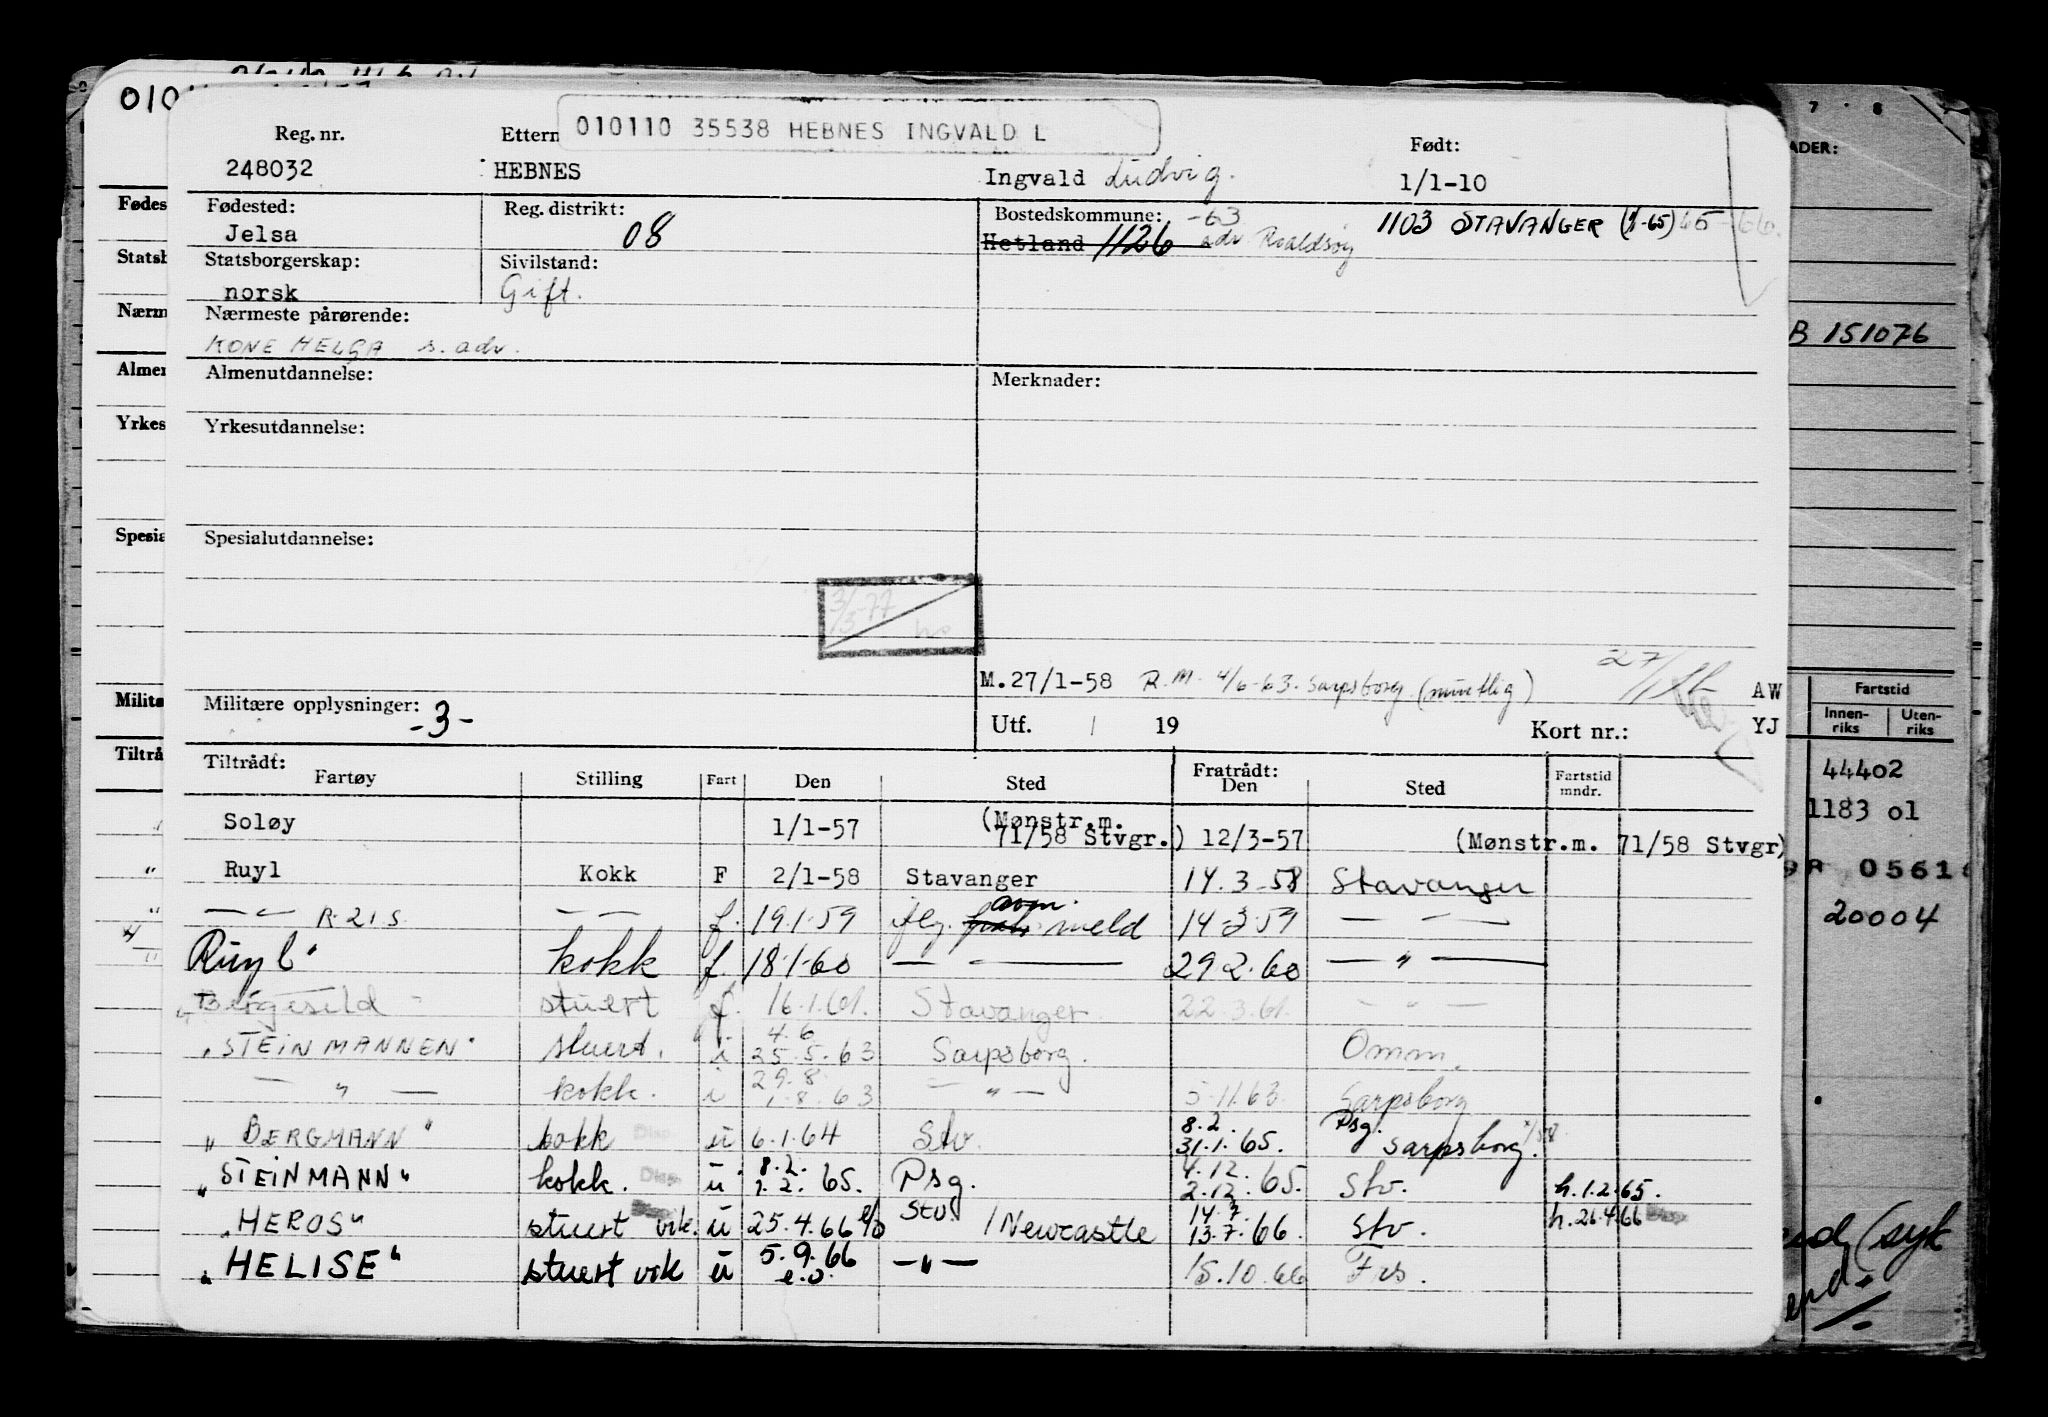 010110 35538 HEBNES INGVALD L
Reg. nr. Ettern Født:
248032 HEBNES Ingvald Ludvig. 1/1-10
Fødested: Reg. distrikt: Bostedskommune: -63 1103 STAVANGER (1/1-65) 65-66.
Jelsa 08 Hetland 1126 adv Roaldsøy
Statsborgerskap: Sivilstand:
norsk Gift.
Nærmeste pårørende:
KONE HELGA s. adv.
Almenutdannelse: Merknader:
Yrkesutdannelse:
Spesialutdannelse:
3/3-77
M.27/1-58 R.M. 4/6-63. Sarpsborg. (muntlig) AW
Militære opplysninger: -3-
Utf. / 19 Kort nr.: YJ
Tiltrådt: Fratrådt:
Fartøy Stilling Fart Den Sted Den Sted Fartstid mndr.
Soløy 1/1-57 (Mønstr.m. 71/58 Stvgr.) 12/3-57 (Mønstr.m. 71/58 Stvgr)
" Ruyl Kokk F 2/1-58 Stavanger 14.3-58 Stavanger
" — " — R.21.S. — — f. 19.1.59 flg. avm. meld 14-3-59 — " —
Ruyl" kokk f. 18.1-60 — " — 29 2.60 — " —
"Bergesild stuert f. 16.1.61. Stavanger 22.3.61. — " —
"STEINMANNEN" stuert. i 4.6 25.5.63 Sarpsborg. Omm.
— " — kokk. i 29.8. 1.8.63 — " — 5.11.63. Sarpsborg
"BERGMANN" kokk Disp. u 6.1.64 Stv. 8.2. 31.1.65. Psg. Sarpsborg.
"STEINMANN" kokk. Disp. u. 8.2. 1.2.65. Psg. 4.12. 2.12.65. Stv. h.1.2.65.
"HEROS" stuert vik. u 25.4.66 e/o Stv. / Newcastle 14.7. 13.7.66. Stv. h.26.4.66 Disp
"HELISE" stuert vik u 5.9.66 e.o. — " — 15.10.66 Frs.
Fødes
Statsb
Nærm
Almen
Yrkes
Spesia
Militæ
Tiltrå
7 8
ADER:
B 151076
Fartstid
Innen-riks Uten-riks
44402
1183 01
0561
20004
(syk